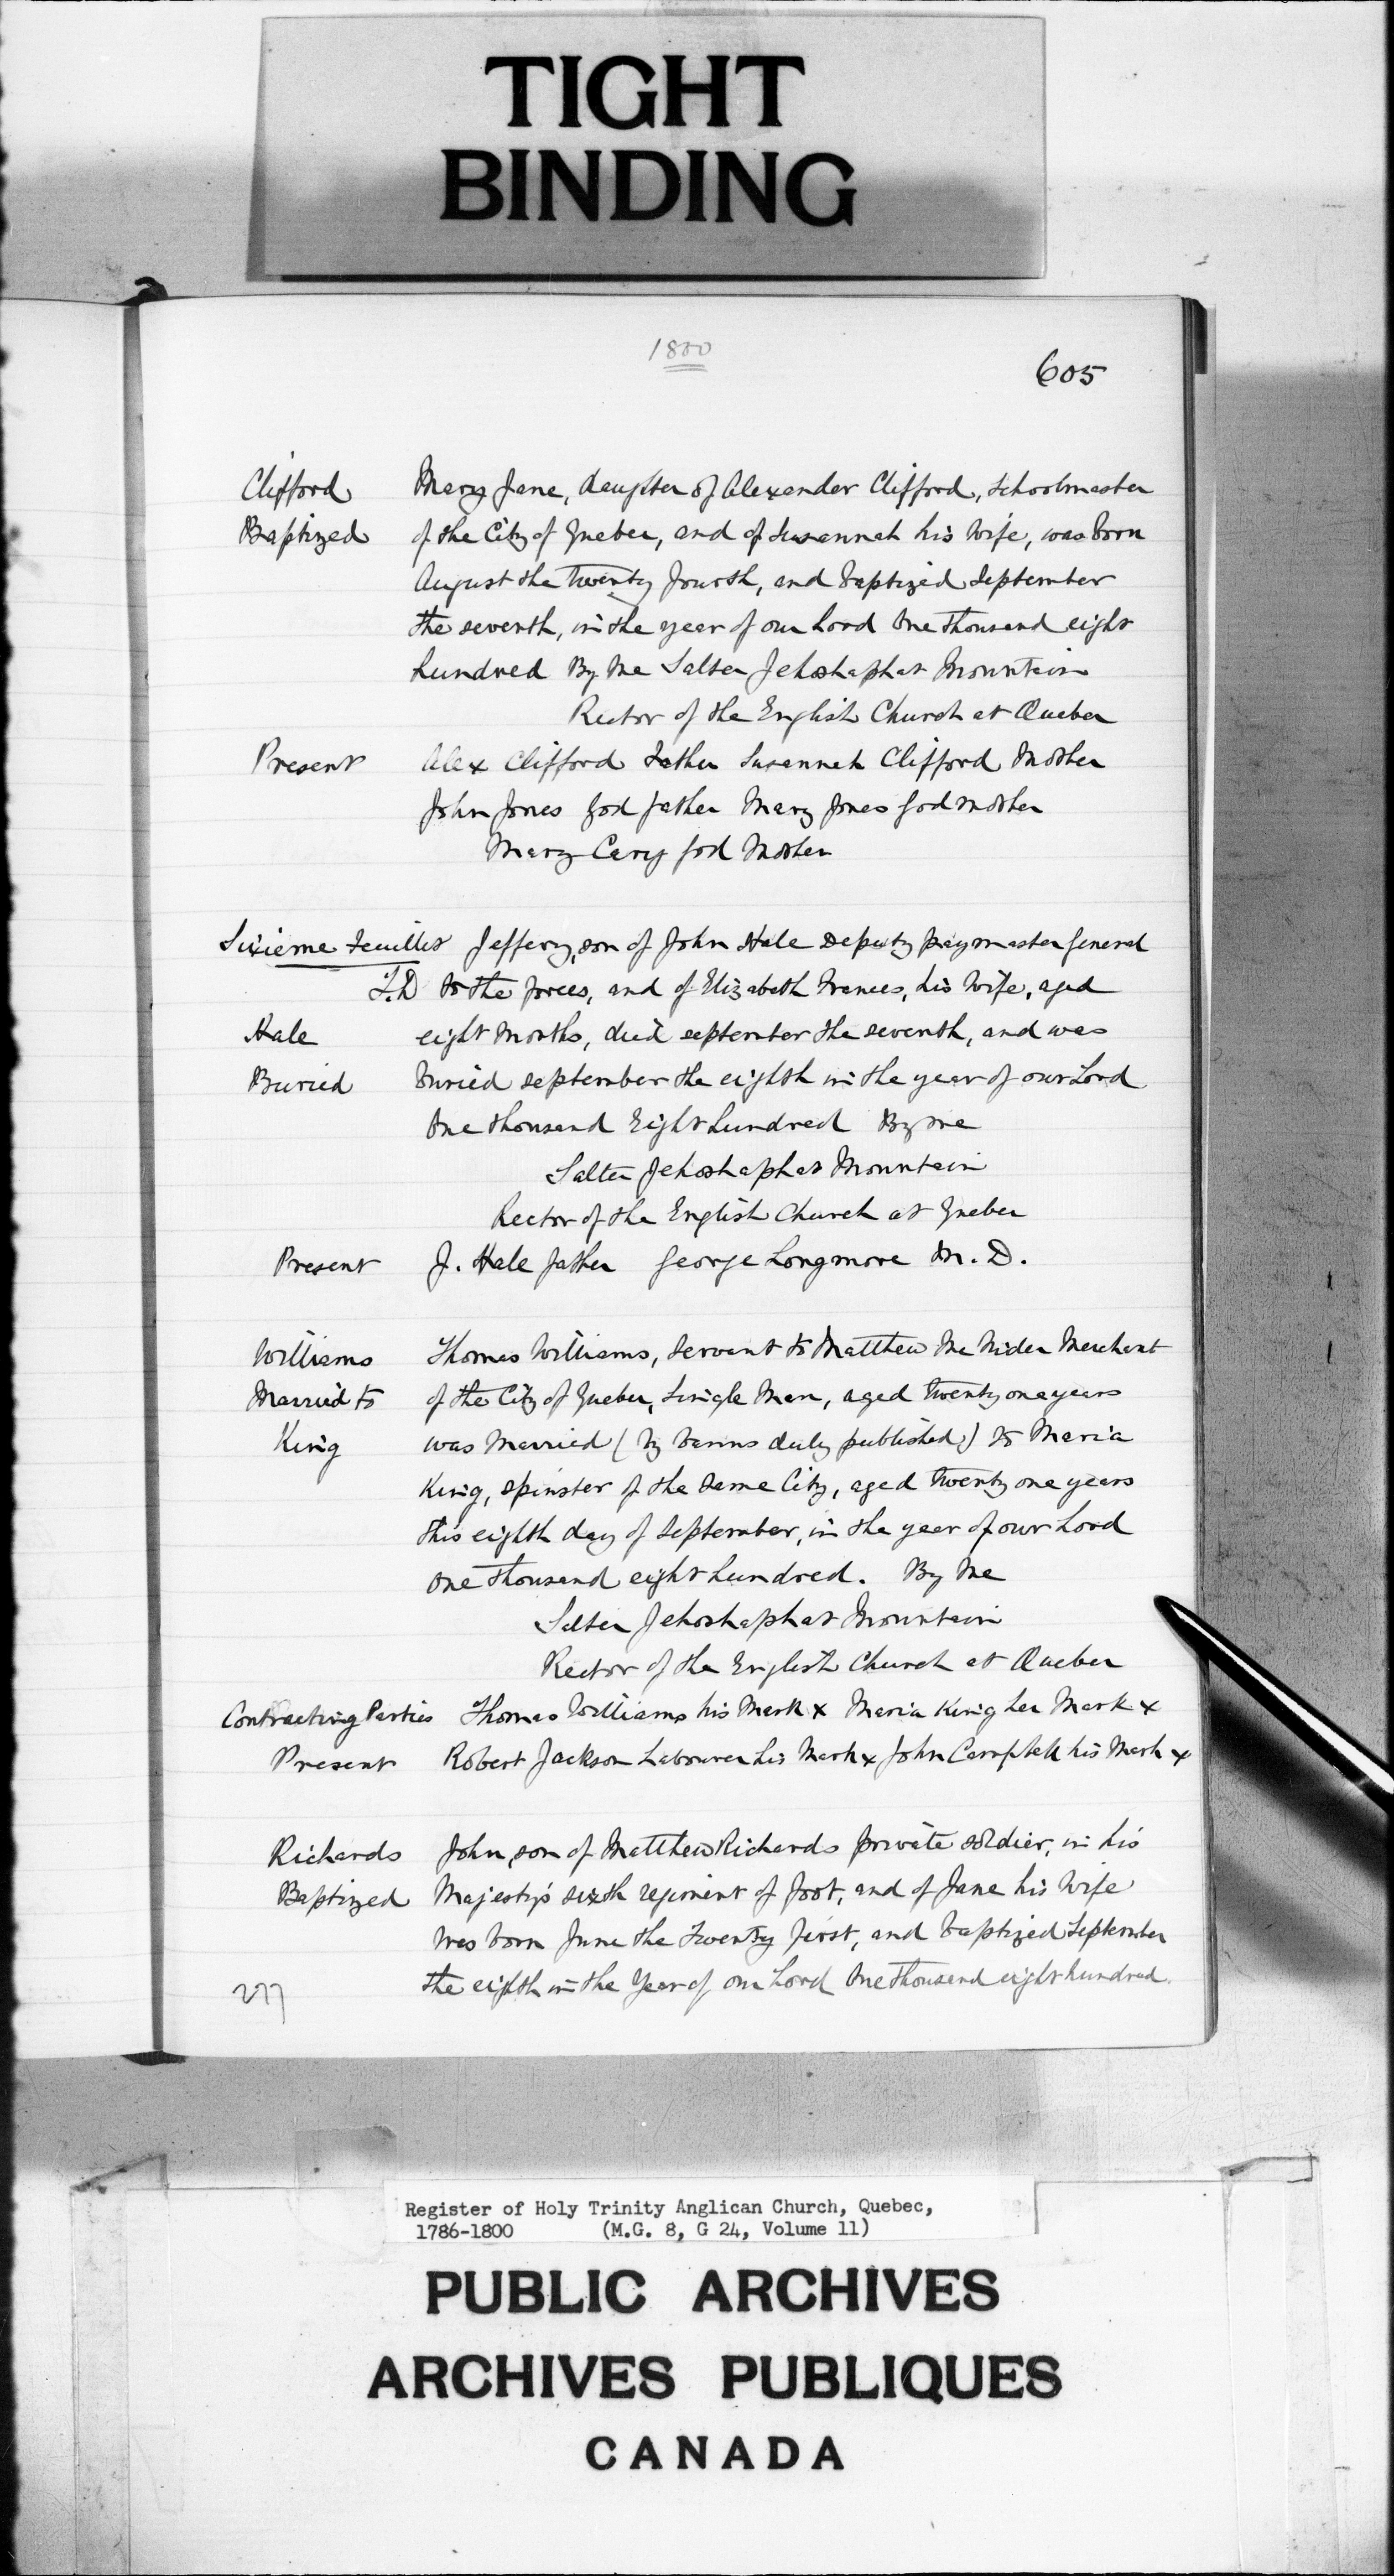 TIGHT
BINDING
1800
605
Clifford Mary Jane, daughter of Alexander Clifford, schoolmaster
Baptized of the City of Quebec, and of Susannah his Wife, was born
August the twenty fourth, and baptized September
the seventh, in the year of our Lord One thousand eight
hundred By Me Salter Jehoshaphat Mountain
Rector of the English Church at Quebec
Present Alex Clifford Father Susannah Clifford Mother
John Jones God father Mary Jones God Mother
Mary Cary God Mother
Sixieme Feuillet Jeffery, son of John Hale Deputy paymaster General
T.D to the forces, and of Elizabeth Frances, his Wife, aged
Hale eight Months, died september the seventh, and was
Buried buried september the eighth in the year of our Lord
One thousand Eight hundred By me
Salter Jehoshaphat Mountain
Rector of the English Church at Quebec
Present J. Hale father George Longmore M.D.
Williams Thomas Williams, Servant to Matthew Mc Nider Merchant
Married to of the City of Quebec, Single Man, aged twenty one years
King was Married (by banns duly published) to Maria
King, spinster of the same City, aged twenty one years
this eighth day of September, in the year of our Lord
One thousand eight hundred. By Me
Salter Jehoshaphat Mountain
Rector of the English Church at Quebec
Contracting Parties Thomas Williams his Mark x Maria King her Mark x
Present Robert Jackson Labourer his Mark x John Campbell his Mark x
Richards John, son of Matthew Richards private soldier, in his
Baptized Majesty's sixth regiment of foot, and of Jane his Wife
Was born June the twenty first, and baptized September
the eighth in the Year of our Lord One thousand eight hundred.
277
Register of Holy Trinity Anglican Church, Quebec,
1786-1800 (M.G. 8, G 24, Volume 11)
PUBLIC ARCHIVES
ARCHIVES PUBLIQUES
CANADA